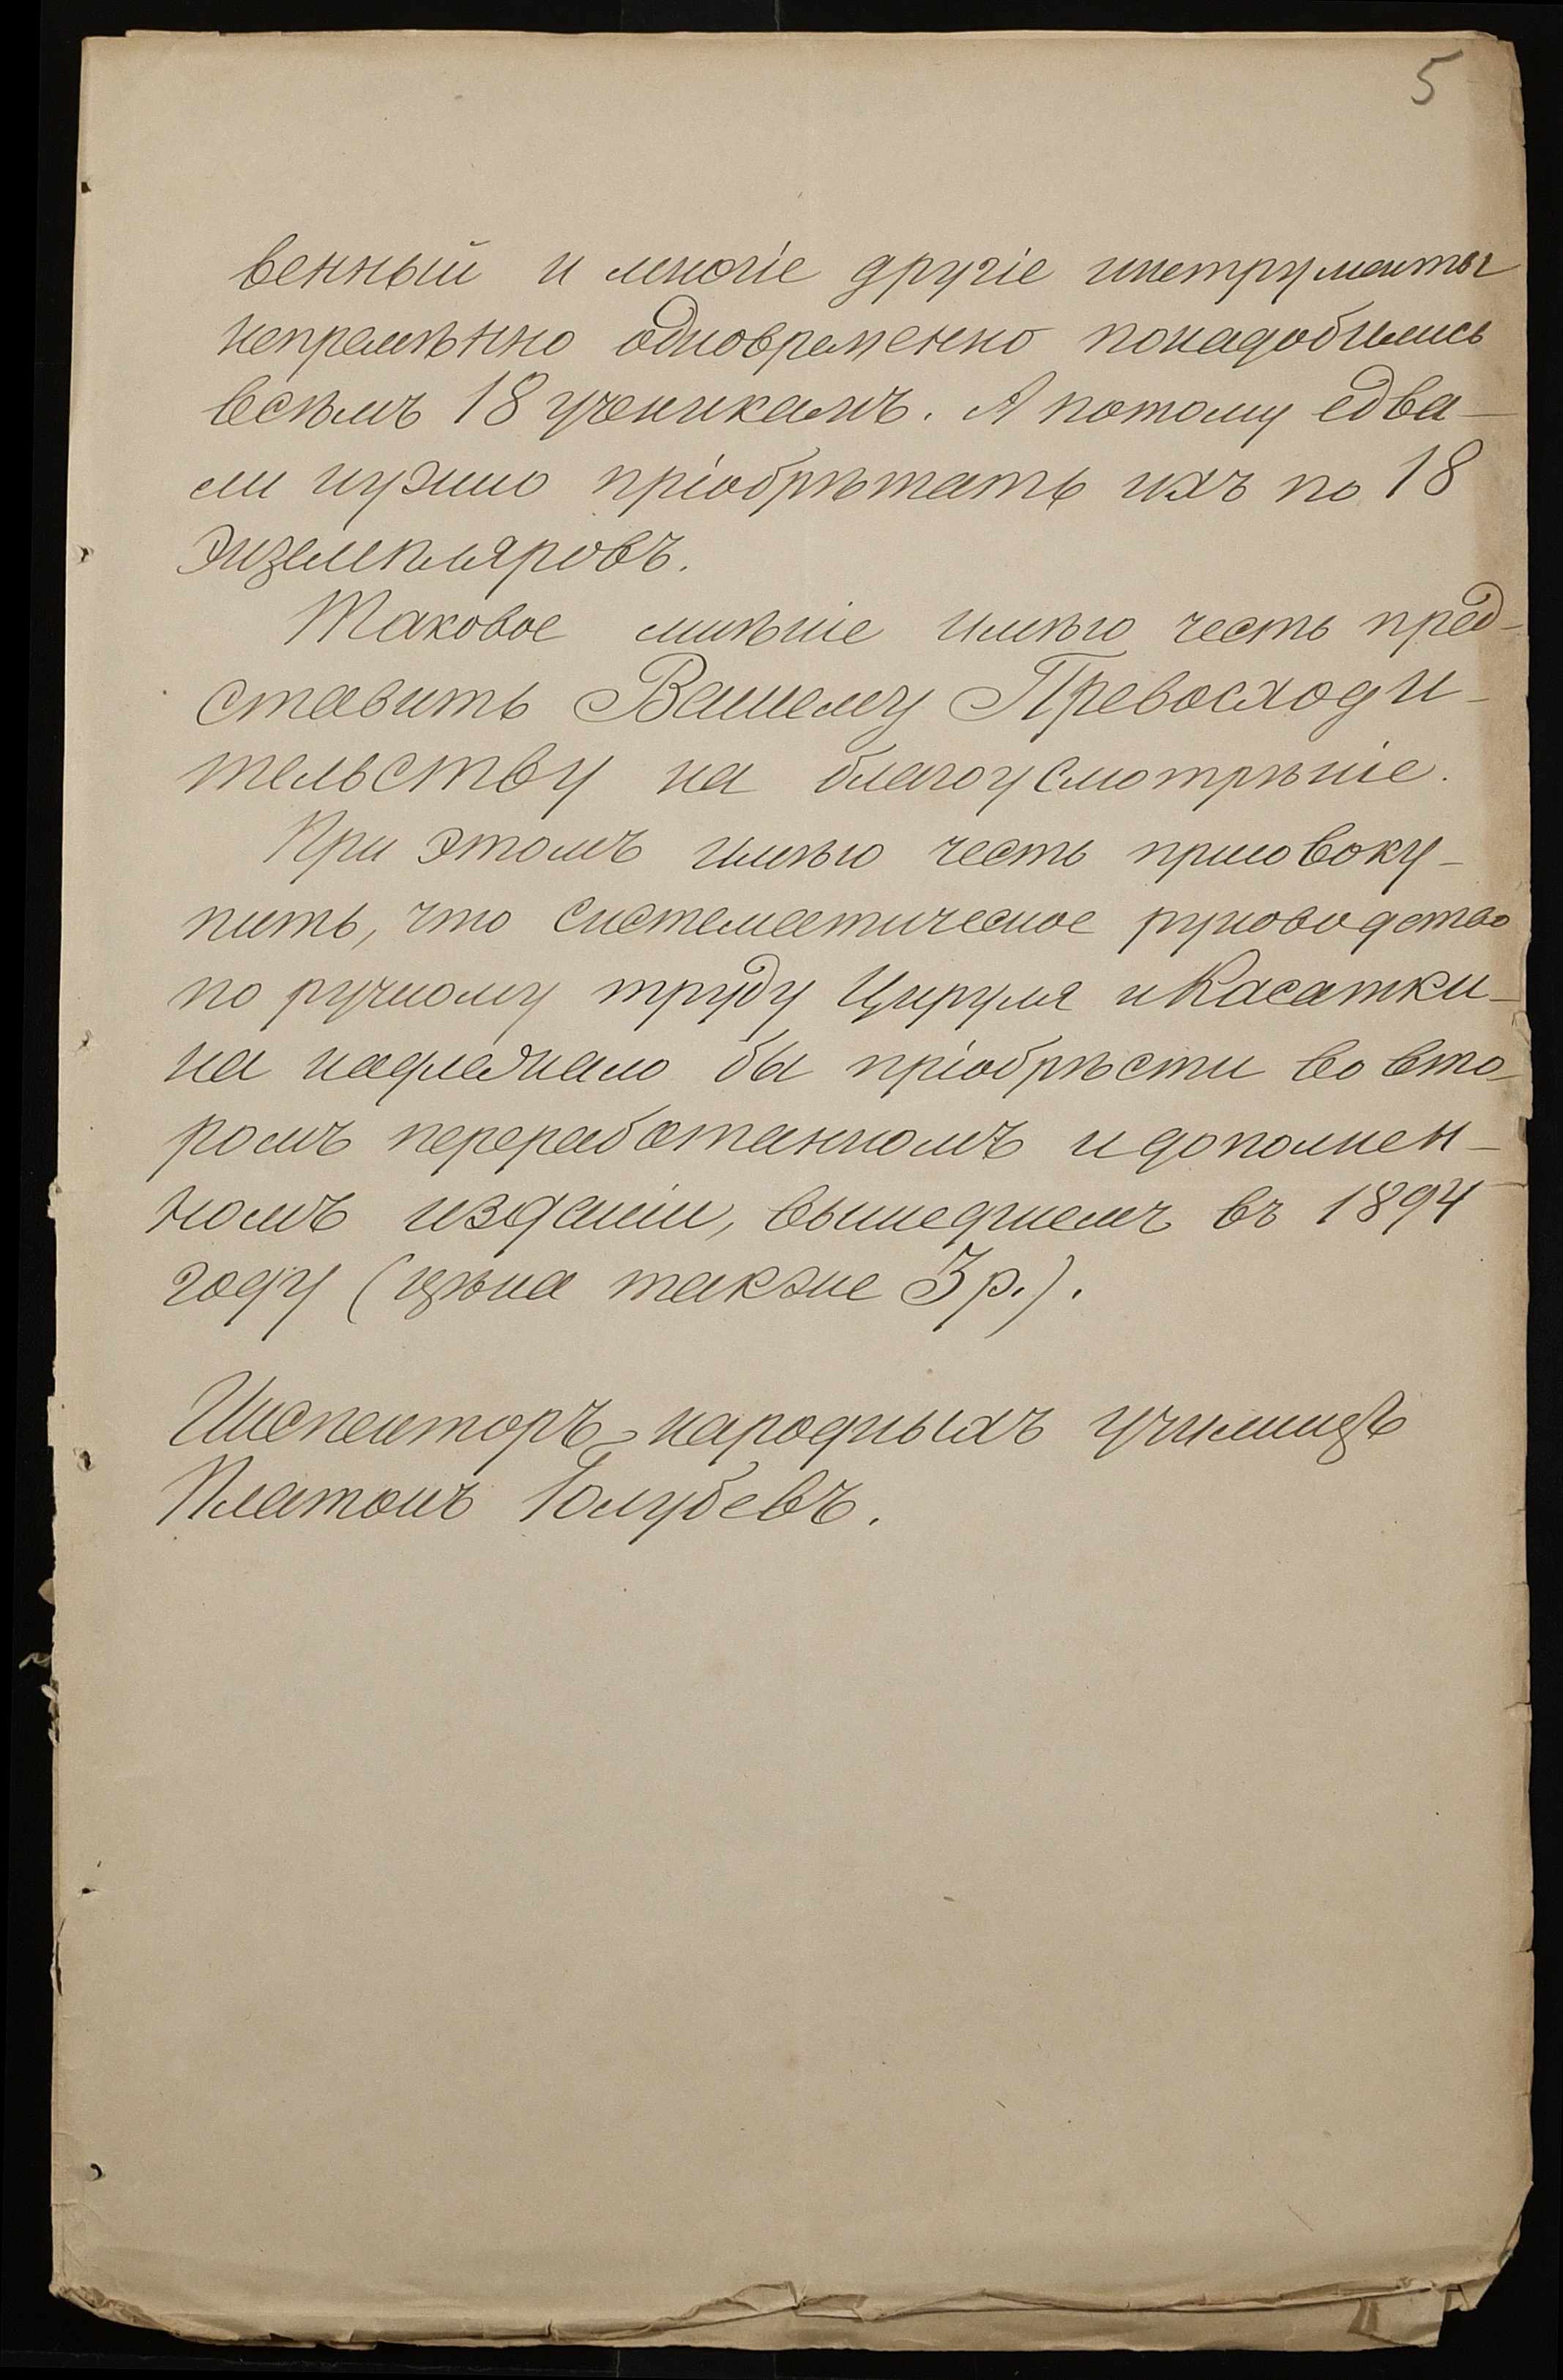 5
венный и многіе другіе инструменты
непремѣнно одновременно понадобились
всѣмъ 18 ученикамъ. А потому едва-
ли нужно пріобрѣтать ихъ по 18
экземпляровъ.
Таковое мнѣніе имѣю честь пред-
ставить Вашему Превосходи-
тельству на благоусмотрѣніе.
При этомъ имѣю честь присовоку-
пить, что систематическое руководство
по ручному труду Цируля и Касатки-
на надлежало бы пріобрѣсти во вто-
ромъ переработанномъ и дополнен-
номъ изданіи, вышедшемъ въ 1894
году (цѣна также 3 р.).
Инспекторъ народныхъ училищъ
Платонъ Голубевъ.